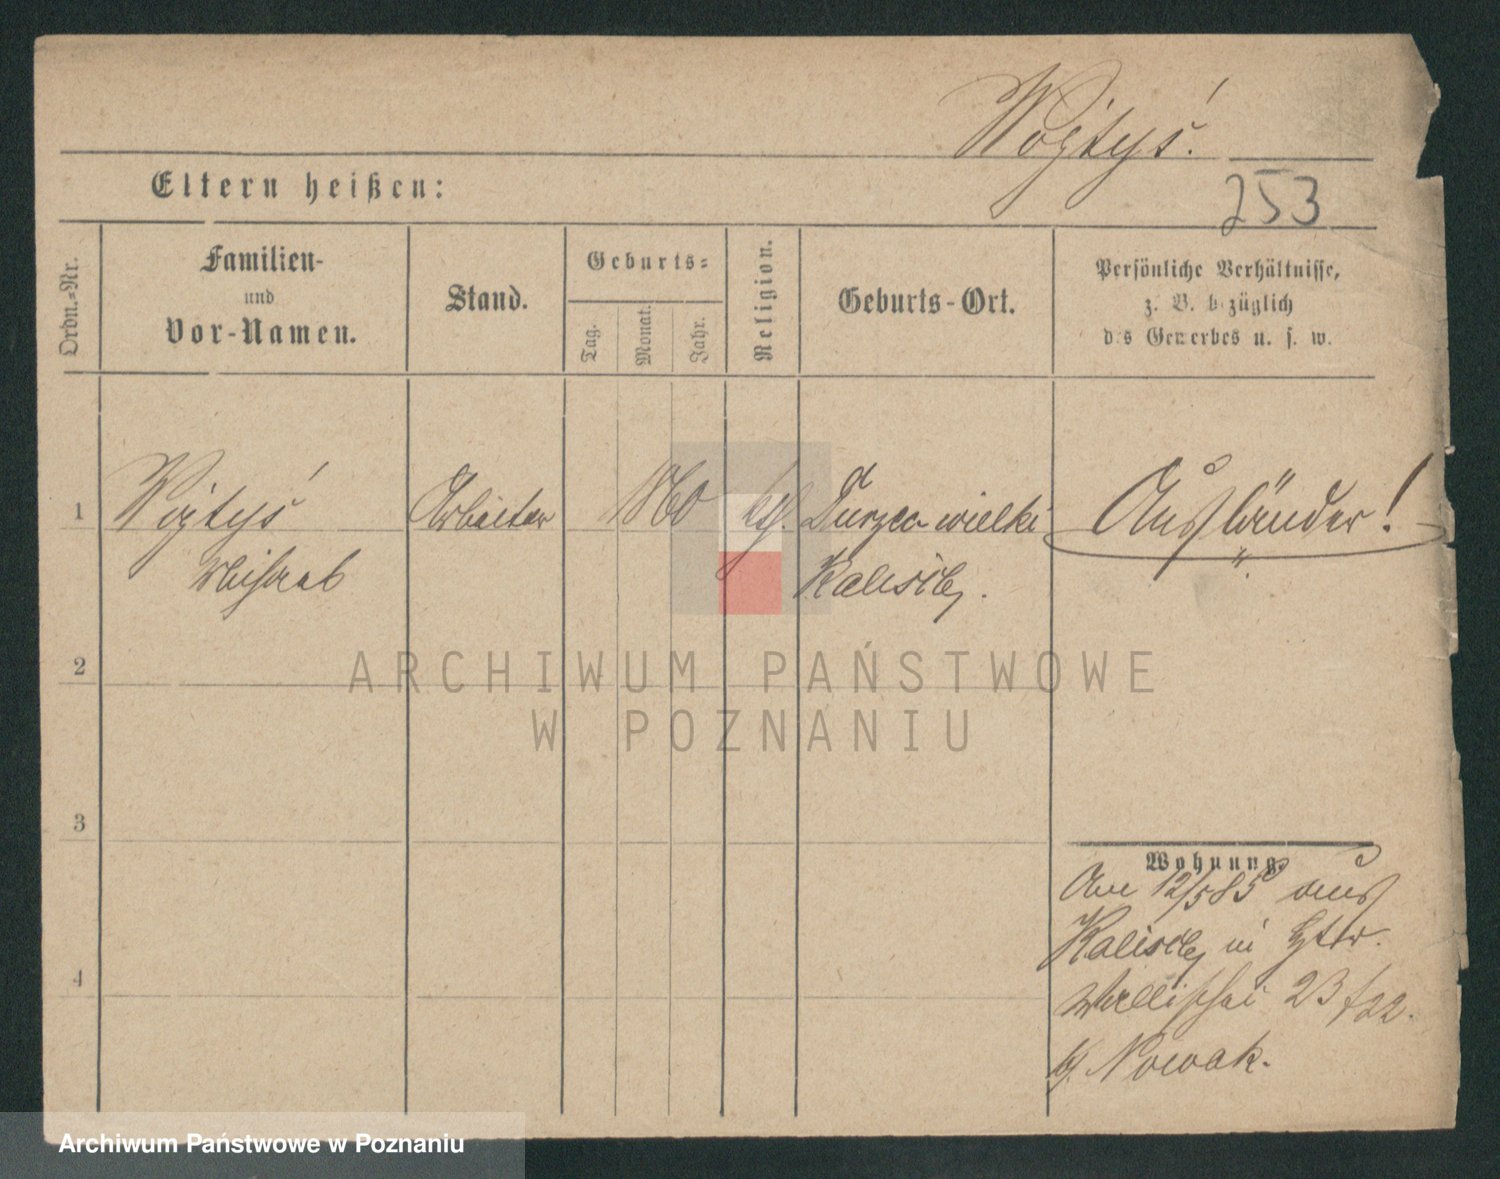 Woytyś.
Eltern heißen:
253
Ordn.-Nr.
Familien-
und
Vor-Namen.
Stand.
Geburts-
Tag.
Monat.
Jahr.
Religion.
Geburts-Ort.
Persönliche Verhältnisse,
z. B. bezüglich
des Gewerbes u. s. w.
1
Arbeiter
1860
kth.
wielki
Ausländer!
2
3
4
Wohnung
Am 12/5 85 aus
Wallischei 23
b. Nowak.
ARCHIWUM PAŃSTWOWE
W POZNANIU
Archiwum Państwowe w Poznaniu